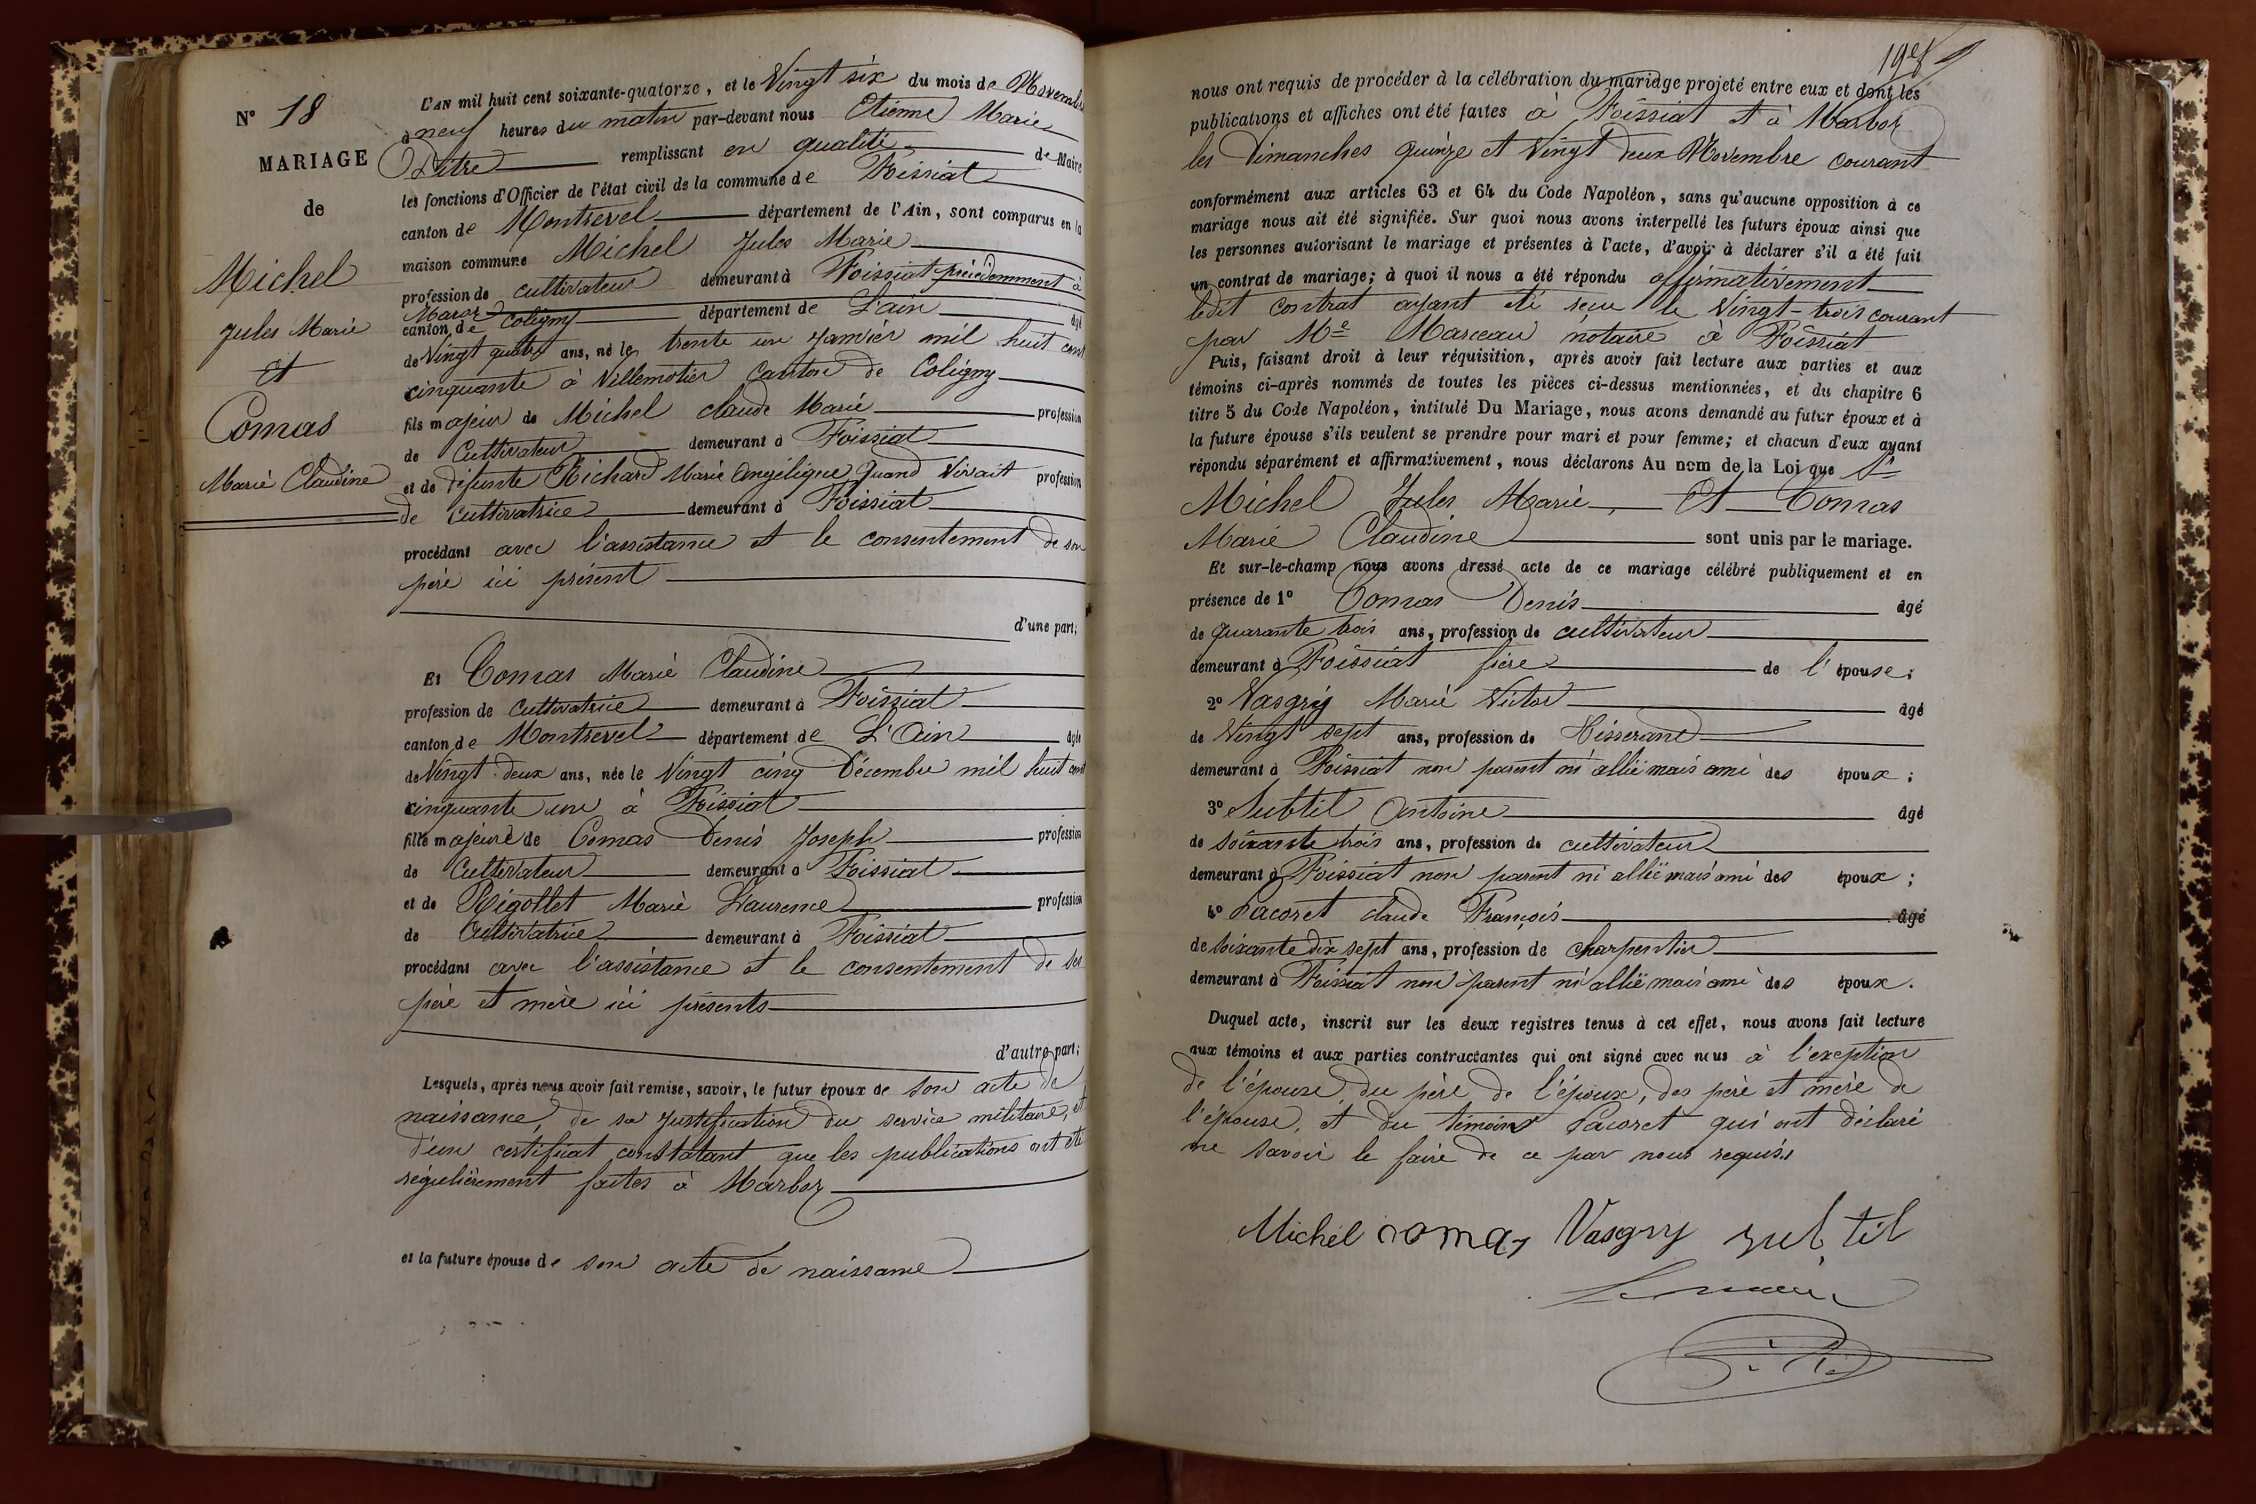 N° 18
MARIAGE
de
Michel
Jules Marie
et
Comas
Marie Claudine
L'AN mil huit cent soixante-quatorze, et le Vingt six du mois de Novembre
à neuf heures du matin par-devant nous Etienne Marie
remplissant en qualité de Maire
les fonctions d'Officier de l'état civil de la commune de Foissiat
canton de Montrevel département de l'Ain, sont comparus en la
maison commune Michel Jules Marie
profession de cultivateur demeurant à Foissiat précédemment à
canton de Coligny département de L'ain âgé
de Vingt quatre ans, né le trente un Janvier mil huit cent
cinquante à Villemotier Canton de Coligny
fils majeur de Michel claude Marie profession
de Cultivateur demeurant à Foissiat
et de défunte Richard Marie Angélique quand vivait profession
de cultivatrice demeurant à Foissiat
procédant avec l'assistance et le consentement de son
père ici présent
d'une part;
Et Comas Marie Claudine
profession de cultivatrice demeurant à Foissiat
canton de Montrevel département de L'Ain âgée
de Vingt deux ans, née le Vingt cinq Décembre mil huit cent
cinquante un à Foissiat
fille majeure de Comas Denis Joseph profession
de Cultivateur demeurant à Foissiat
et de Rigollet Marie Laurence profession
de Cultivatrice demeurant à Foissiat
procédant avec l'assistance et le consentement de ses
père et mère ici présents
d'autre part;
Lesquels, après nous avoir fait remise, savoir, le futur époux de son acte de
naissance, de sa justification du service militaire, et
d'un certificat constatant que les publications ont été
régulièrement faites à Marboz
et la future épouse de son acte de naissance
nous ont requis de procéder à la célébration du mariage projeté entre eux et dont les
publications et affiches ont été faites à Foissiat et à Marboz
les Dimanches quinze et Vingt deux Novembre courant
conformément aux articles 63 et 64 du Code Napoléon, sans qu'aucune opposition à ce
mariage nous ait été signifiée. Sur quoi nous avons interpellé les futurs époux ainsi que
les personnes autorisant le mariage et présentes à l'acte, d'avoir à déclarer s'il a été fait
un contrat de mariage; à quoi il nous a été répondu affirmativement
ledit contrat ayant été reçu le Vingt-trois courant
par Me Marceau notaire à Foissiat
Puis, faisant droit à leur réquisition, après avoir fait lecture aux parties et aux
témoins ci-après nommés de toutes les pièces ci-dessus mentionnées, et du chapitre 6
titre 5 du Code Napoléon, intitulé Du Mariage, nous avons demandé au futur époux et à
la future épouse s'ils veulent se prendre pour mari et pour femme; et chacun d'eux ayant
répondu séparément et affirmativement, nous déclarons Au nom de la Loi que
Michel Jules Marie, Et Comas
Marie Claudine sont unis par le mariage.
Et sur-le-champ nous avons dressé acte de ce mariage célébré publiquement et en
présence de 1° Comas Denis âgé
de quarante trois ans, profession de cultivateur
demeurant à Foissiat frère de l'épouse;
2° Vasgry Marie Victor âgé
de Vingt sept ans, profession de Tisserand
demeurant à Foissiat non parent ni allié mais ami des époux;
3° Subtil Antoine âgé
de soixante trois ans, profession de cultivateur
demeurant à Foissiat non parent ni allié mais ami des époux;
4° Pacoret claude François âgé
de soixante dix sept ans, profession de charpentier
demeurant à Foissiat non parent ni allié mais ami des époux.
Duquel acte, inscrit sur les deux registres tenus à cet effet, nous avons fait lecture
aux témoins et aux parties contractantes qui ont signé avec nous à l'exception
de l'épouse, du père de l'époux, des père et mère de
l'épouse, et du témoins Pacoret qui ont déclaré
ne savoir le faire de ce par nous requis.
Michel comas Vasgry subtil
Le maire